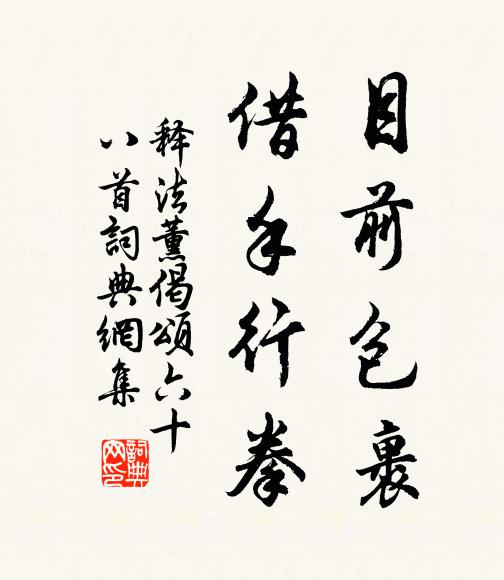 目前包裹
借手行拳
释法薰偈颂六十
八首詞典網集
詞典網印